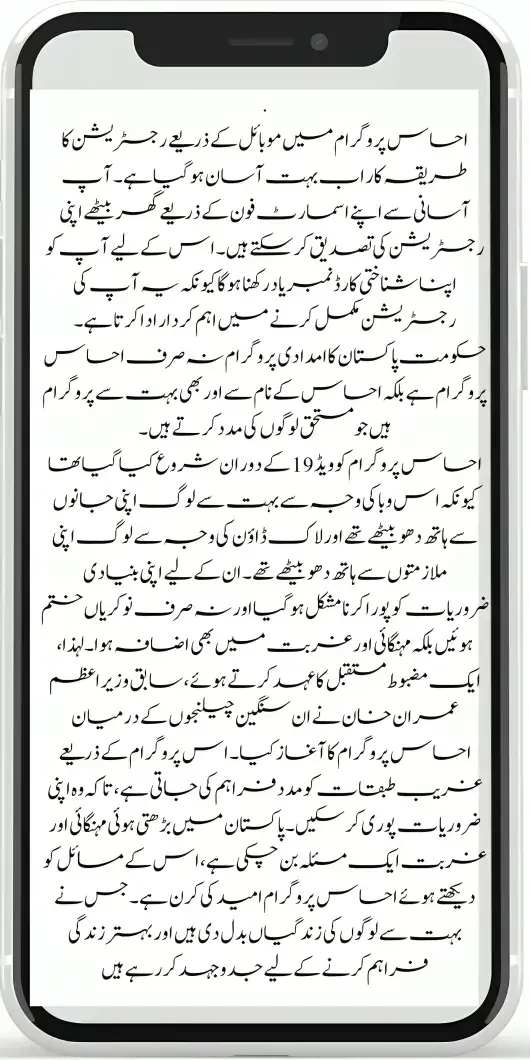 احساس پروگرام میں موبائل کے ذریعے رجسٹریشن کا
طریقہ کار اب بہت آسان ہو گیا ہے۔ آپ
آسانی سے اپنے اسمارٹ فون کے ذریعے گھر بیٹھے اپنی
رجسٹریشن کی تصدیق کر سکتے ہیں۔ اس کے لیے آپ کو
اپنا شناختی کارڈ نمبر یاد رکھنا ہوگا کیونکہ یہ آپ کی
رجسٹریشن مکمل کرنے میں اہم کردار ادا کرتا ہے۔
حکومت پاکستان کا امدادی پروگرام نہ صرف احساس
پروگرام ہے بلکہ احساس کے نام سے اور بھی بہت سے پروگرام
ہیں جو مستحق لوگوں کی مدد کرتے ہیں۔
احساس پروگرام کوویڈ 19 کے دوران شروع کیا گیا تھا
کیونکہ اس وبا کی وجہ سے بہت سے لوگ اپنی جانوں
سے ہاتھ دھو بیٹھے تھے اور لاک ڈاؤن کی وجہ سے لوگ اپنی
ملازمتوں سے ہاتھ دھو بیٹھے تھے۔ ان کے لیے اپنی بنیادی
ضروریات کو پورا کرنا مشکل ہو گیا اور نہ صرف نوکریاں ختم
ہوئیں بلکہ مہنگائی اور غربت میں بھی اضافہ ہوا۔ لہذا،
ایک مضبوط مستقبل کا عہد کرتے ہوئے، سابق وزیر اعظم
عمران خان نے ان سنگین چیلنجوں کے درمیان
احساس پروگرام کا آغاز کیا۔ اس پروگرام کے ذریعے
غریب طبقات کو مدد فراہم کی جاتی ہے، تاکہ وہ اپنی
ضروریات پوری کر سکیں۔ پاکستان میں بڑھتی ہوئی مہنگائی اور
غربت ایک مسئلہ بن چکی ہے، اس کے مسائل کو
دیکھتے ہوئے احساس پروگرام امید کی کرن ہے۔ جس نے
بہت سے لوگوں کی زندگیاں بدل دی ہیں اور بہتر زندگی
فراہم کرنے کے لیے جدوجہد کر رہے ہیں